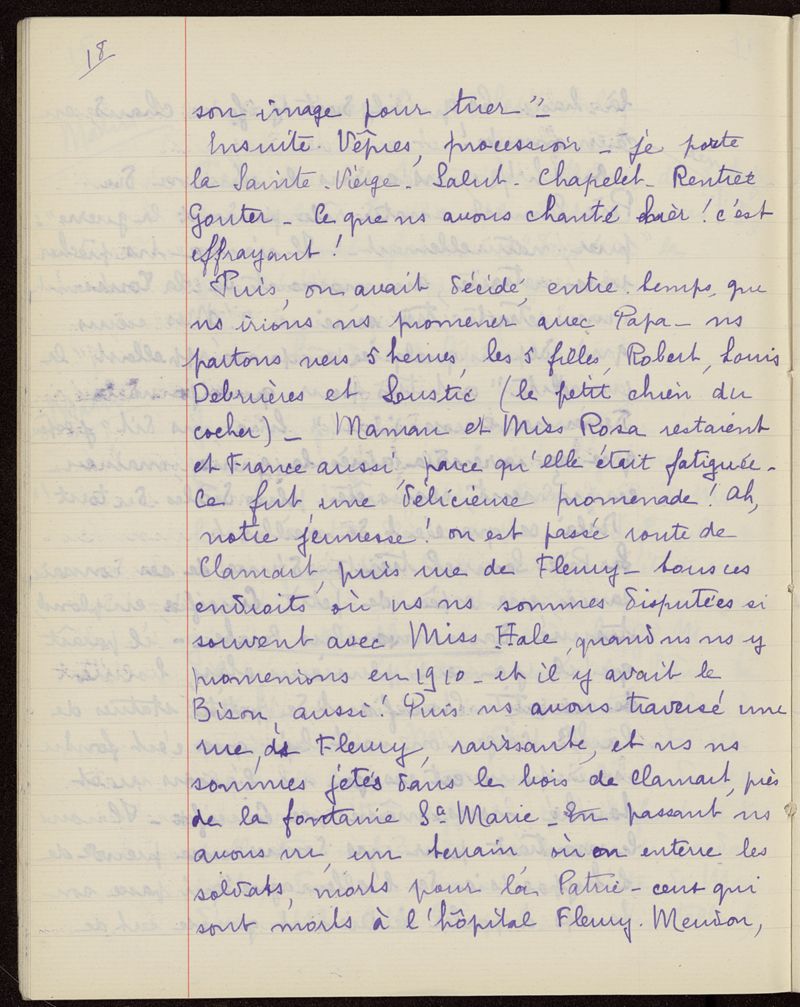 18
son image pour tuer"-
Ensuite. Vêpres, procession - je porte
la Sainte-Vierge. Salut. Chapelet - Rentrée
Gouter - Ce que ns avons chanté hier ! c'est
effrayant !
Puis, on avait décidé, entre-temps, que
ns irions ns promener avec Papa - ns
partons vers 5 heures, les 5 filles, Robert, Louis
Debruères et Loustic (le petit chien du
cocher) - Maman et Miss Rosa restaient
et France aussi, parce qu'elle était fatiguée -
Ce fut une délicieuse promenade ! Ah,
notre jeunesse ! on est passé route de
Clamart, puis rue de Fleury - tous ces
endroits où ns ns sommes disputées si
souvent avec Miss Hale, quand ns ns y
promenions en 1910 - et il y avait le
Bison, aussi ! Puis ns avons traversé une
rue, de Fleury, ravissante, et ns ns
sommes jetés dans le bois de Clamart, près
de la fontaine Ste Marie - En passant ns
avons vu, un terrain où on enterre les
soldats, morts pour la Patrie - ceux qui
sont morts à l'hôpital Fleury. Meudon,